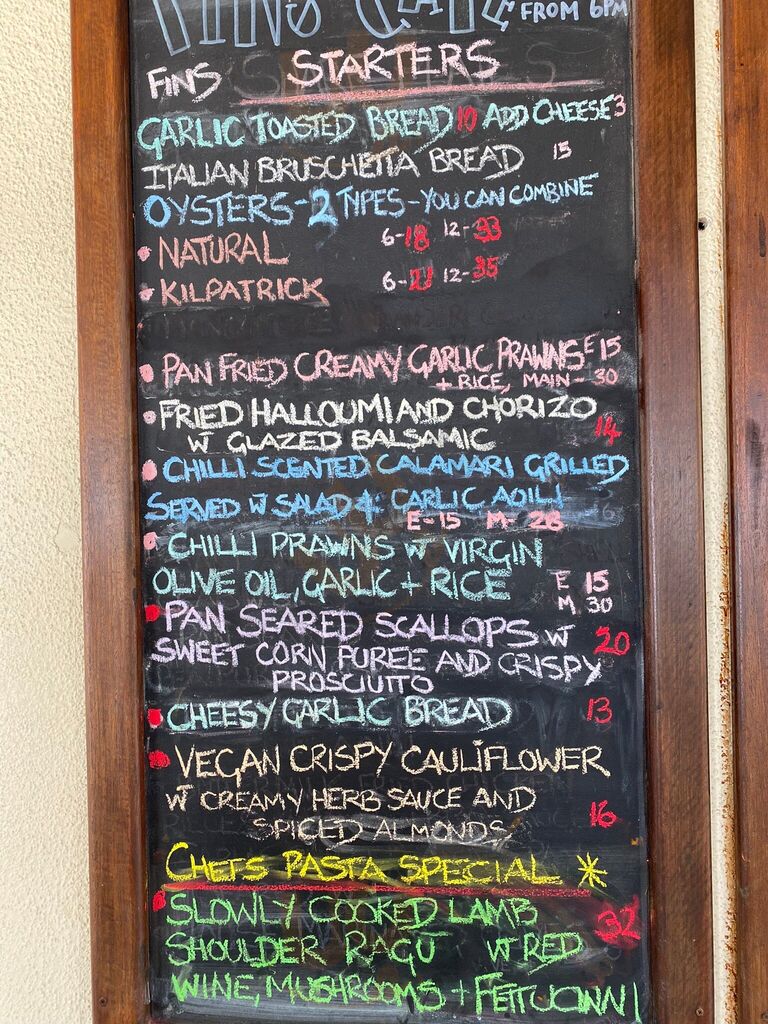 FINS CAFE FROM 6PM
FINS STARTERS
GARLIC TOASTED BREAD 10 ADD CHEESE 3
ITALIAN BRUSCHETTA BREAD 15
OYSTERS - 2 TYPES - YOU CAN COMBINE
• NATURAL 6-18 12-33
• KILPATRICK 6-21 12-35
• PAN FRIED CREAMY GARLIC PRAWNS E 15
+ RICE, MAIN - 30
• FRIED HALLOUMI AND CHORIZO
W GLAZED BALSAMIC 14
• CHILLI SCENTED CALAMARI GRILLED
SERVED W SALAD & GARLIC AOILI
E-15 M-28
• CHILLI PRAWNS W VIRGIN
OLIVE OIL, GARLIC + RICE E 15
M 30
• PAN SEARED SCALLOPS W 20
SWEET CORN PUREE AND CRISPY
PROSCIUTTO
• CHEESY GARLIC BREAD 13
• VEGAN CRISPY CAULIFLOWER
W CREAMY HERB SAUCE AND
SPICED ALMONDS 16
CHEFS PASTA SPECIAL *
• SLOWLY COOKED LAMB 32
SHOULDER RAGU W RED
WINE, MUSHROOMS + FETTUCINNI